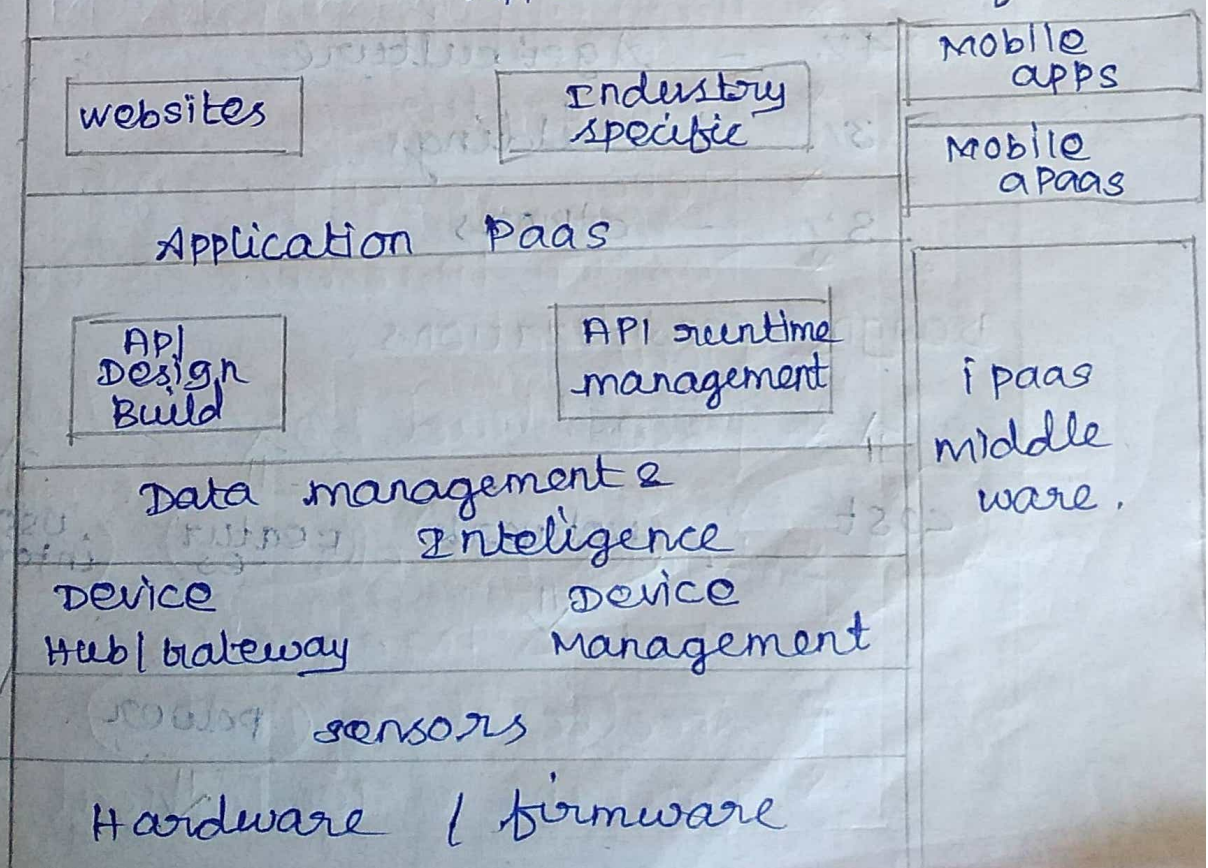 websites
Industry
specific
Mobile
apps
Mobile
apaas
Application Paas
API
Design
Build
API runtime
management
i paas
middle
ware.
Data management &
Inteligence
Device
Hub/Gateway
Device
Management
sensors
Hardware / firmware